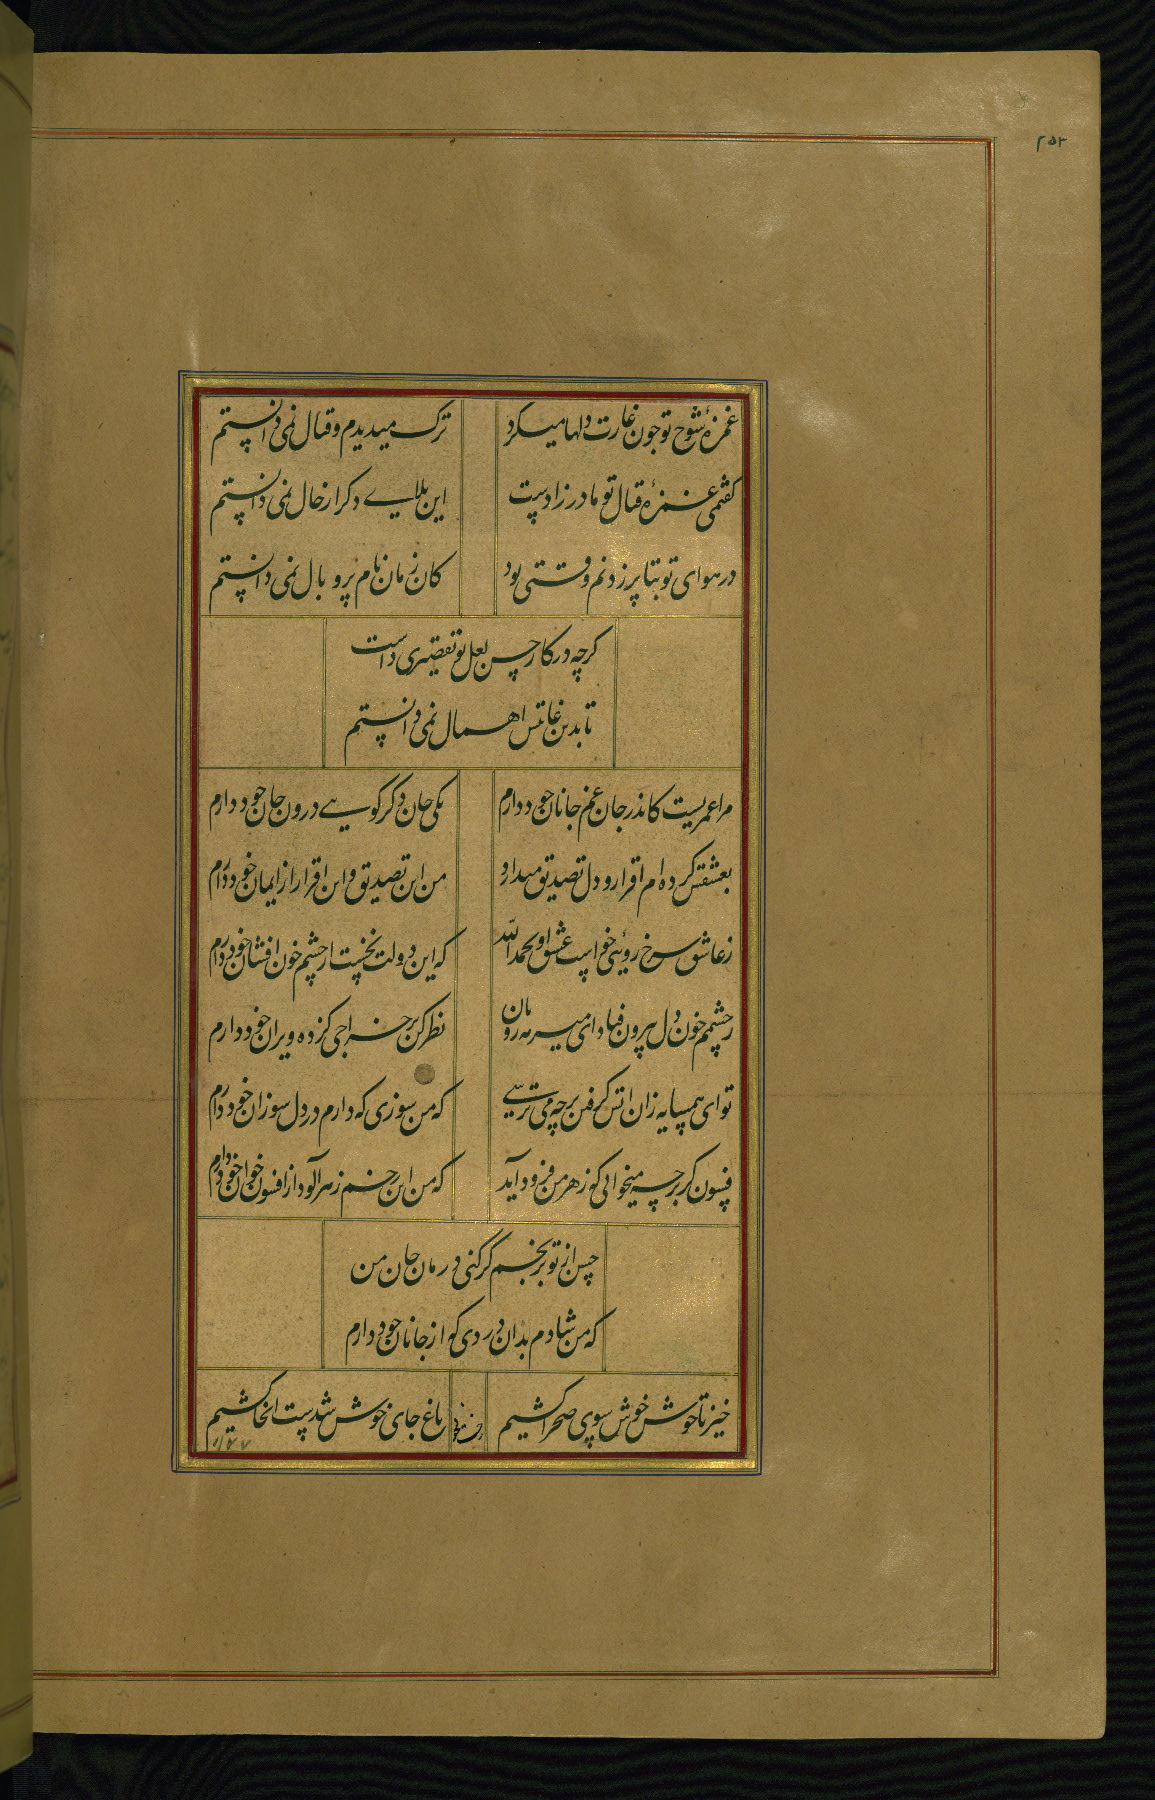 ۲۵۳
غمزهٔ شوخ تو چون غارت دلها میکرد ترک میدیدم و قتال نمی دانستم
گفتمی غمزهٔ قتال تو مادر زادست این بلایی دکر از خال نمی دانستم
در هوای تو بتا پر زدنم وقتی بود کان زمان نام پر و بال نمی دانستم
کرچه در کار حسن لعل تو تقصیری داشت
تا بدین غایتش اهمال نمی دانستم
مرا عمریست کاندر جان غم جانان خود دارم یکی جان دکر کویی درون جان خود دارم
بعشقش کرده ام اقرار و دل تصدیق میدارد من این تصدیق و این اقرار از ایمان خود دارم
ز عاشق سرخ رویی خواست عشق او بحمد الله که این دولت نخست از چشم خون افشان خود دارم
ز چشمم خون دل بیرون فتاد ای میر مه رویان نظر کن بر خراجی کز ده ویران خود دارم
تو ای همسایه زان اتش کرفتن بر چه می ترسی که من سوزی که دارم در دل سوزان خود دارم
فسون کر بر چه میخوانی که زهر من فرود آید که من این زخم زهر آلود از افسون خوان خود دارم
حسن از تو برنجم کر کنی درمان جان من
که من شادم بدان دردی که از جانان خود دارم
خیز تا خوش خوش سوی صحرا کشیم باغ جای خوش شدست انجا کشیم